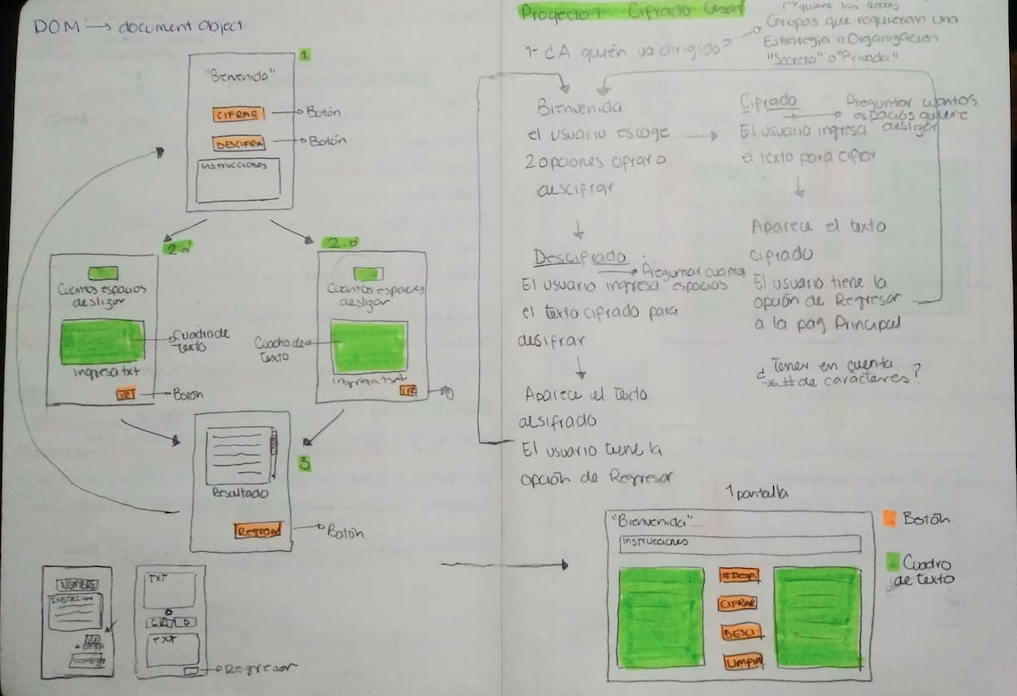 DOM → document object
1
"Bienvenida"
CIFRAR
Botón
DESCIFRA
Botón
INSTRUCCIONES
2.a
2.b
Cuantos espacios
deslizar
Cuadro de
texto
Ingresa txt
IR
Boton
Cuantos espacios
deslizar
Cuadro de
Texto
Ingresa txt
IR
3
Resultado
Regresar
Botón
NOMBRE
TXT
TXT
Regresar
Proyecto 1 Cifrado Cesar
1- ¿A quién va dirigido?
Grupos que requieran una
Estrategia o Organización
"Secreta" o "Privada"
Bienvenida
el usuario escoge
2 opciones cifrar o
descifrar
Descifrado
Preguntar cuantos
espacios
El usuario ingresa
el texto cifrado para
desifrar
Aparece el texto
desifrado
El usuario tiene la
opción de Regresar
Cifrado
Preguntar cuantos
espacios quiere
deslizar
El usuario ingresa
el texto para cifrar
Aparece el texto
cifrado
El usuario tiene la
opción de Regresar
a la pag Principal
¿Tener en cuenta
# de carácteres?
1 pantalla
"Bienvenida"
Instrucciones
# Desp.
CIFRAR
DESCI
LIMPIAR
Botón
Cuadro
de texto